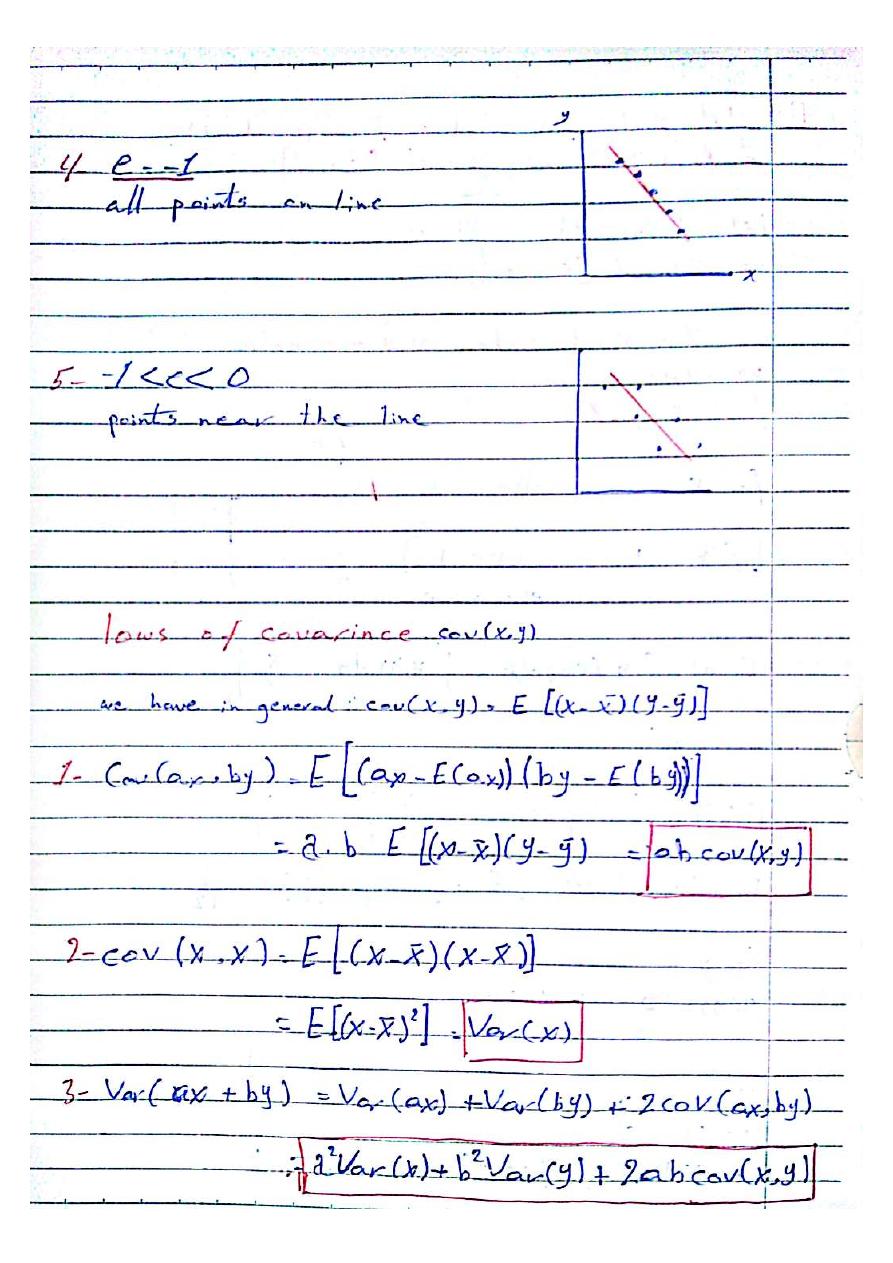 y
4- e = -1
all points on line
x
5- -1 < e < 0
points near the line
lows of covarince cov(x,y)
we have in general : cov(x,y) = E [(x - x̄)(y - ȳ)]
1- Cov(ax, by) = E [(ax - E(ax)) (by - E(by))]
= a.b E [(x - x̄)(y - ȳ) = ab cov(x,y)
2- cov (x, x) = E [(x - x̄)(x - x̄)]
= E[(x - x̄)²] = Var(x)
3- Var( ax + by ) = Var(ax) + Var(by) + 2cov(ax,by)
= a²Var(x) + b²Var(y) + 2ab cov(x,y)